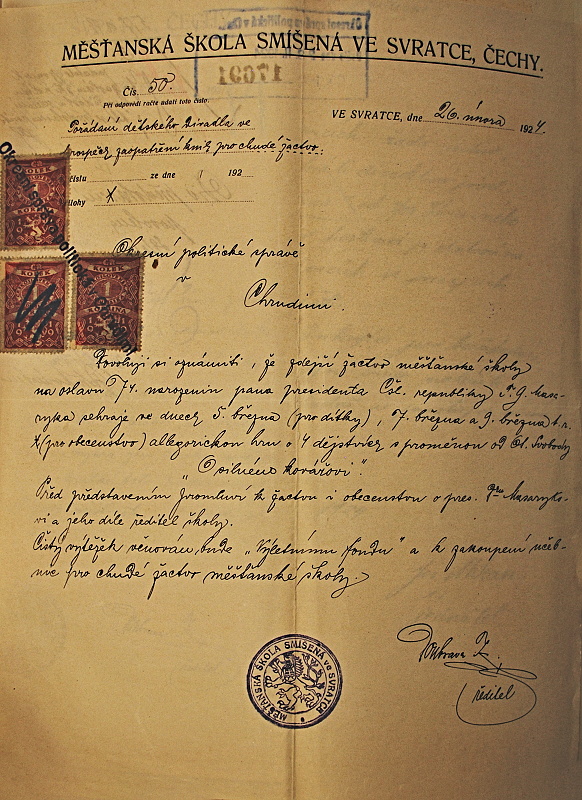 MĚŠŤANSKÁ ŠKOLA SMÍŠENÁ VE SVRATCE, ČECHY.
17091
Čís. 50.
Při odpovědi račte udati toto číslo.
VE SVRATCE, dne 26. února 1924.
Pořádání dětského divadla ve
prospěch zaopatření knih pro chudé žactvo.
číslu ze dne 192
přílohy X
Okresní politické správě
v
Chrudimi.
Dovoluji si oznámiti, že zdejší žactvo měšťanské školy
na oslavu 74. narozenin pana presidenta Čsl. republiky T. G. Masa-
ryka sehraje ve dnech 5. března (pro dítky), 7. března a 9. března t. r.
(pro obecenstvo) allegorickou hru o 4 dějstvích s proměnou od St. Svobody
"O silném kovářovi".
Před představením promluví k žactvu i obecenstvu o pres. Masaryko-
vi a jeho díle ředitel školy.
Čistý výtěžek věnován bude "Výletnímu fondu" a k zakoupení učeb-
nic pro chudé žactvo měšťanské školy.
ředitel
MĚŠŤANSKÁ ŠKOLA SMÍŠENÁ ve SVRATCE
KOLEK
KOLEK
KOLEK
1